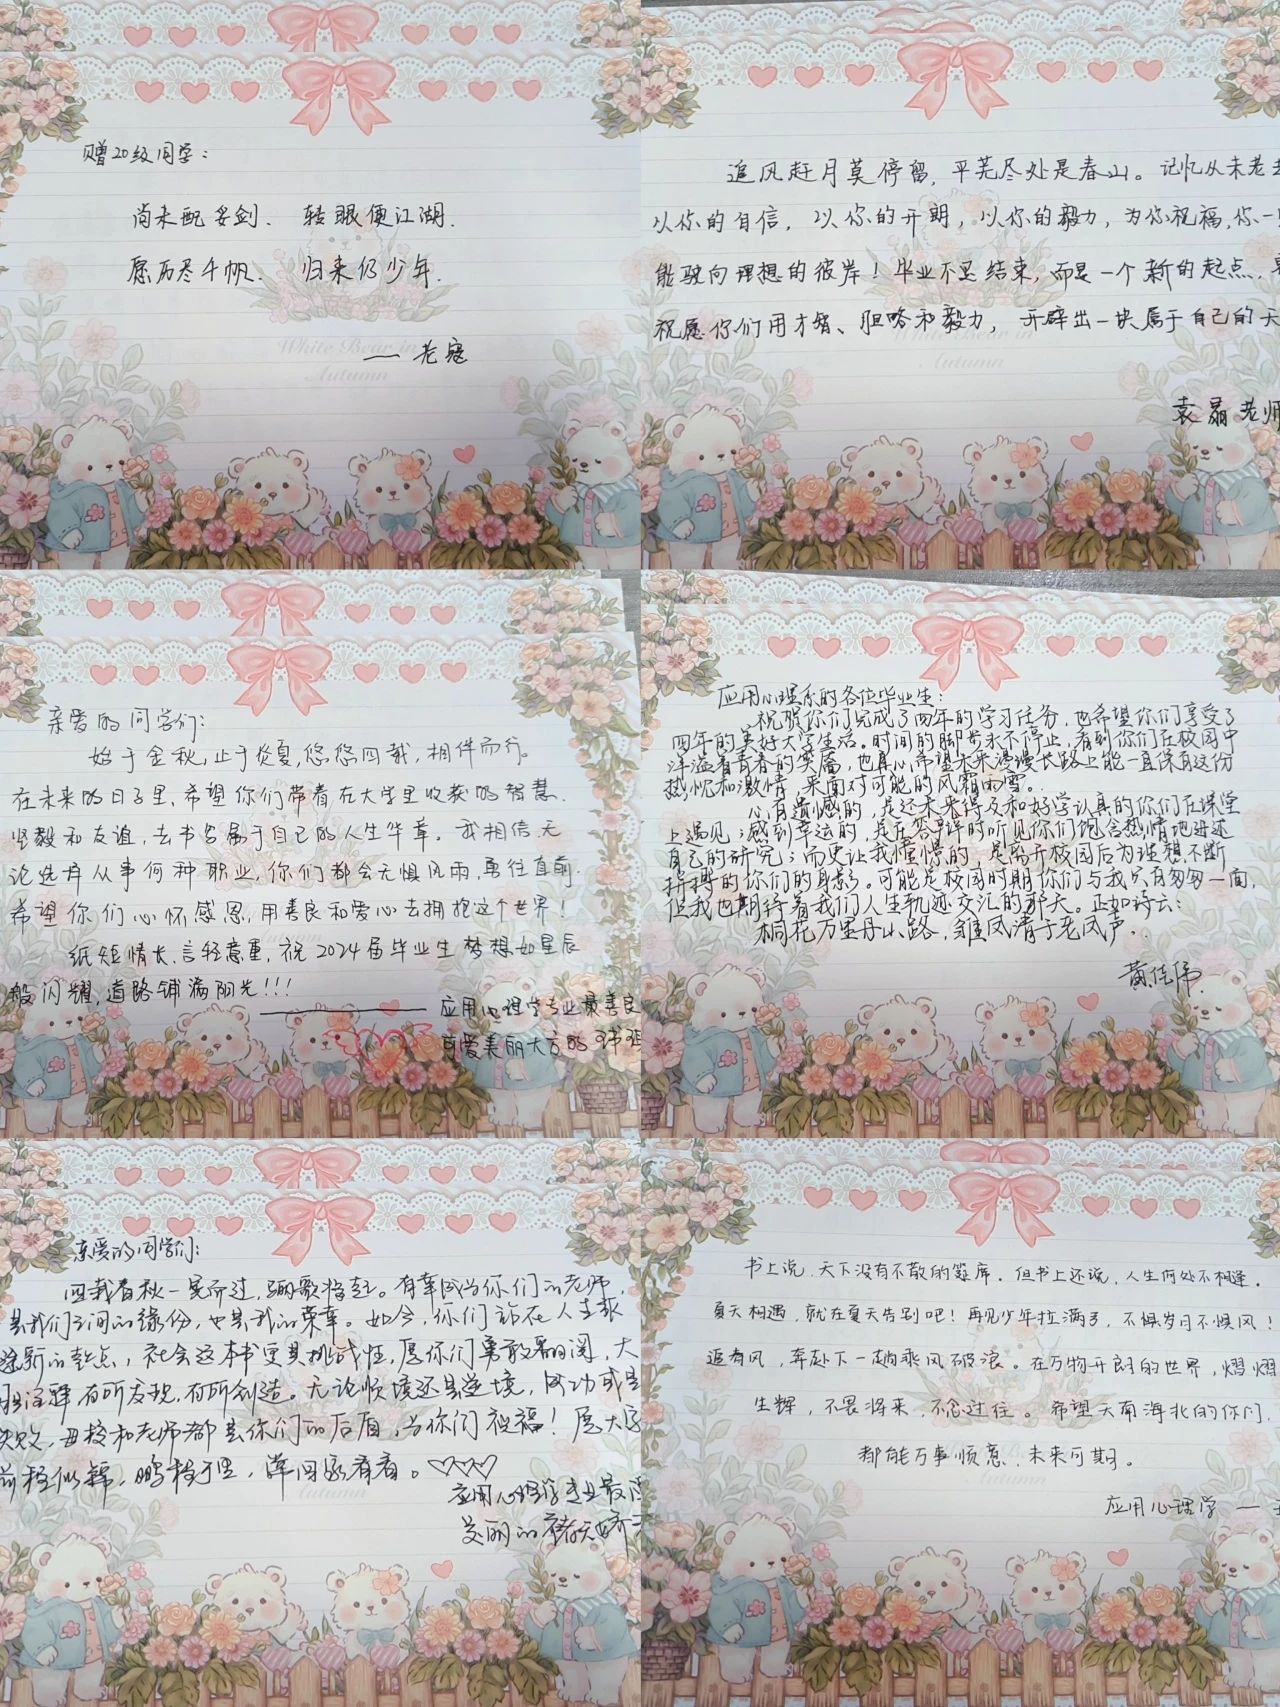 赠20级同学：
尚未配妥剑、转眼便江湖.
愿历尽千帆、归来仍少年.
——老寇
White Bear in
Autumn
追风赶月莫停留，平芜尽处是春山。记忆从未老去
以你的自信，以你的开朗，以你的毅力，为你祝福，你一
能驶向理想的彼岸！毕业不是结束，而是一个新的起点，
祝愿你们用才智、胆略和毅力，开辟出一块属于自己的天
袁晶老师
亲爱的同学们：
始于金秋，止于炎夏，悠悠四载，相伴而行。
在未来的日子里，希望你们带着在大学里收获的智慧、
坚毅和友谊，去书写属于自己的人生华章。我相信，无
论选择从事何种职业，你们都会无惧风雨，勇往直前.
希望你们心怀感恩，用善良和爱心去拥抱这个世界！
纸短情长，言轻意重，祝2024届毕业生梦想如星辰
般闪耀，道路铺满阳光！！！
——应用心理学专业最善良
可爱美丽大方的
应用心理系的各位毕业生：
祝贺你们完成了四年的学习任务，也希望你们享受了
四年的美好大学生活。时间的脚步永不停止，看到你们在校园中
洋溢着青春的笑靥，也真心希望未来漫漫长路上能一直保有这份
热忱和激情，来面对可能的风霜雨雪。
心有遗憾的，是还未来得及和好学认真的你们在课堂
上遇见；感到幸运的，是在答辩时听见你们饱含热情地讲述
自己的研究；而更让我憧憬的，是离开校园后为理想不断
拼搏的你们的身影。可能是校园时期你们与我只有匆匆一面，
但我也期待着我们人生轨迹交汇的那天。正如诗云：
桐花万里丹山路，雏凤清于老凤声。
黄佳伟
亲爱的同学们：
四载春秋一晃而过，骊歌将起。有幸成为你们的老师，
是我们之间的缘份，也是我的荣幸。如今，你们站在人生旅
途新的起点，社会这本书更具挑战性，愿你们勇敢翻阅，大
胆注释，有所发现，有所创造。无论顺境还是逆境，成功或是
失败，母校和老师都是你们的后盾，为你们祝福！愿大家
前程似锦，鹏程万里，常回家看看。♡♡♡
应用心理学专业最
美丽的
书上说，天下没有不散的筵席。但书上还说，人生何处不相逢。
夏天相遇，就在夏天告别吧！再见少年拉满弓，不惧岁月不惧风！
追有风，奔赴下一趟乘风破浪。在万物开朗的世界，熠熠
生辉，不畏将来，不念过往。希望天南海北的你们，
都能万事顺意，未来可期。
应用心理学——